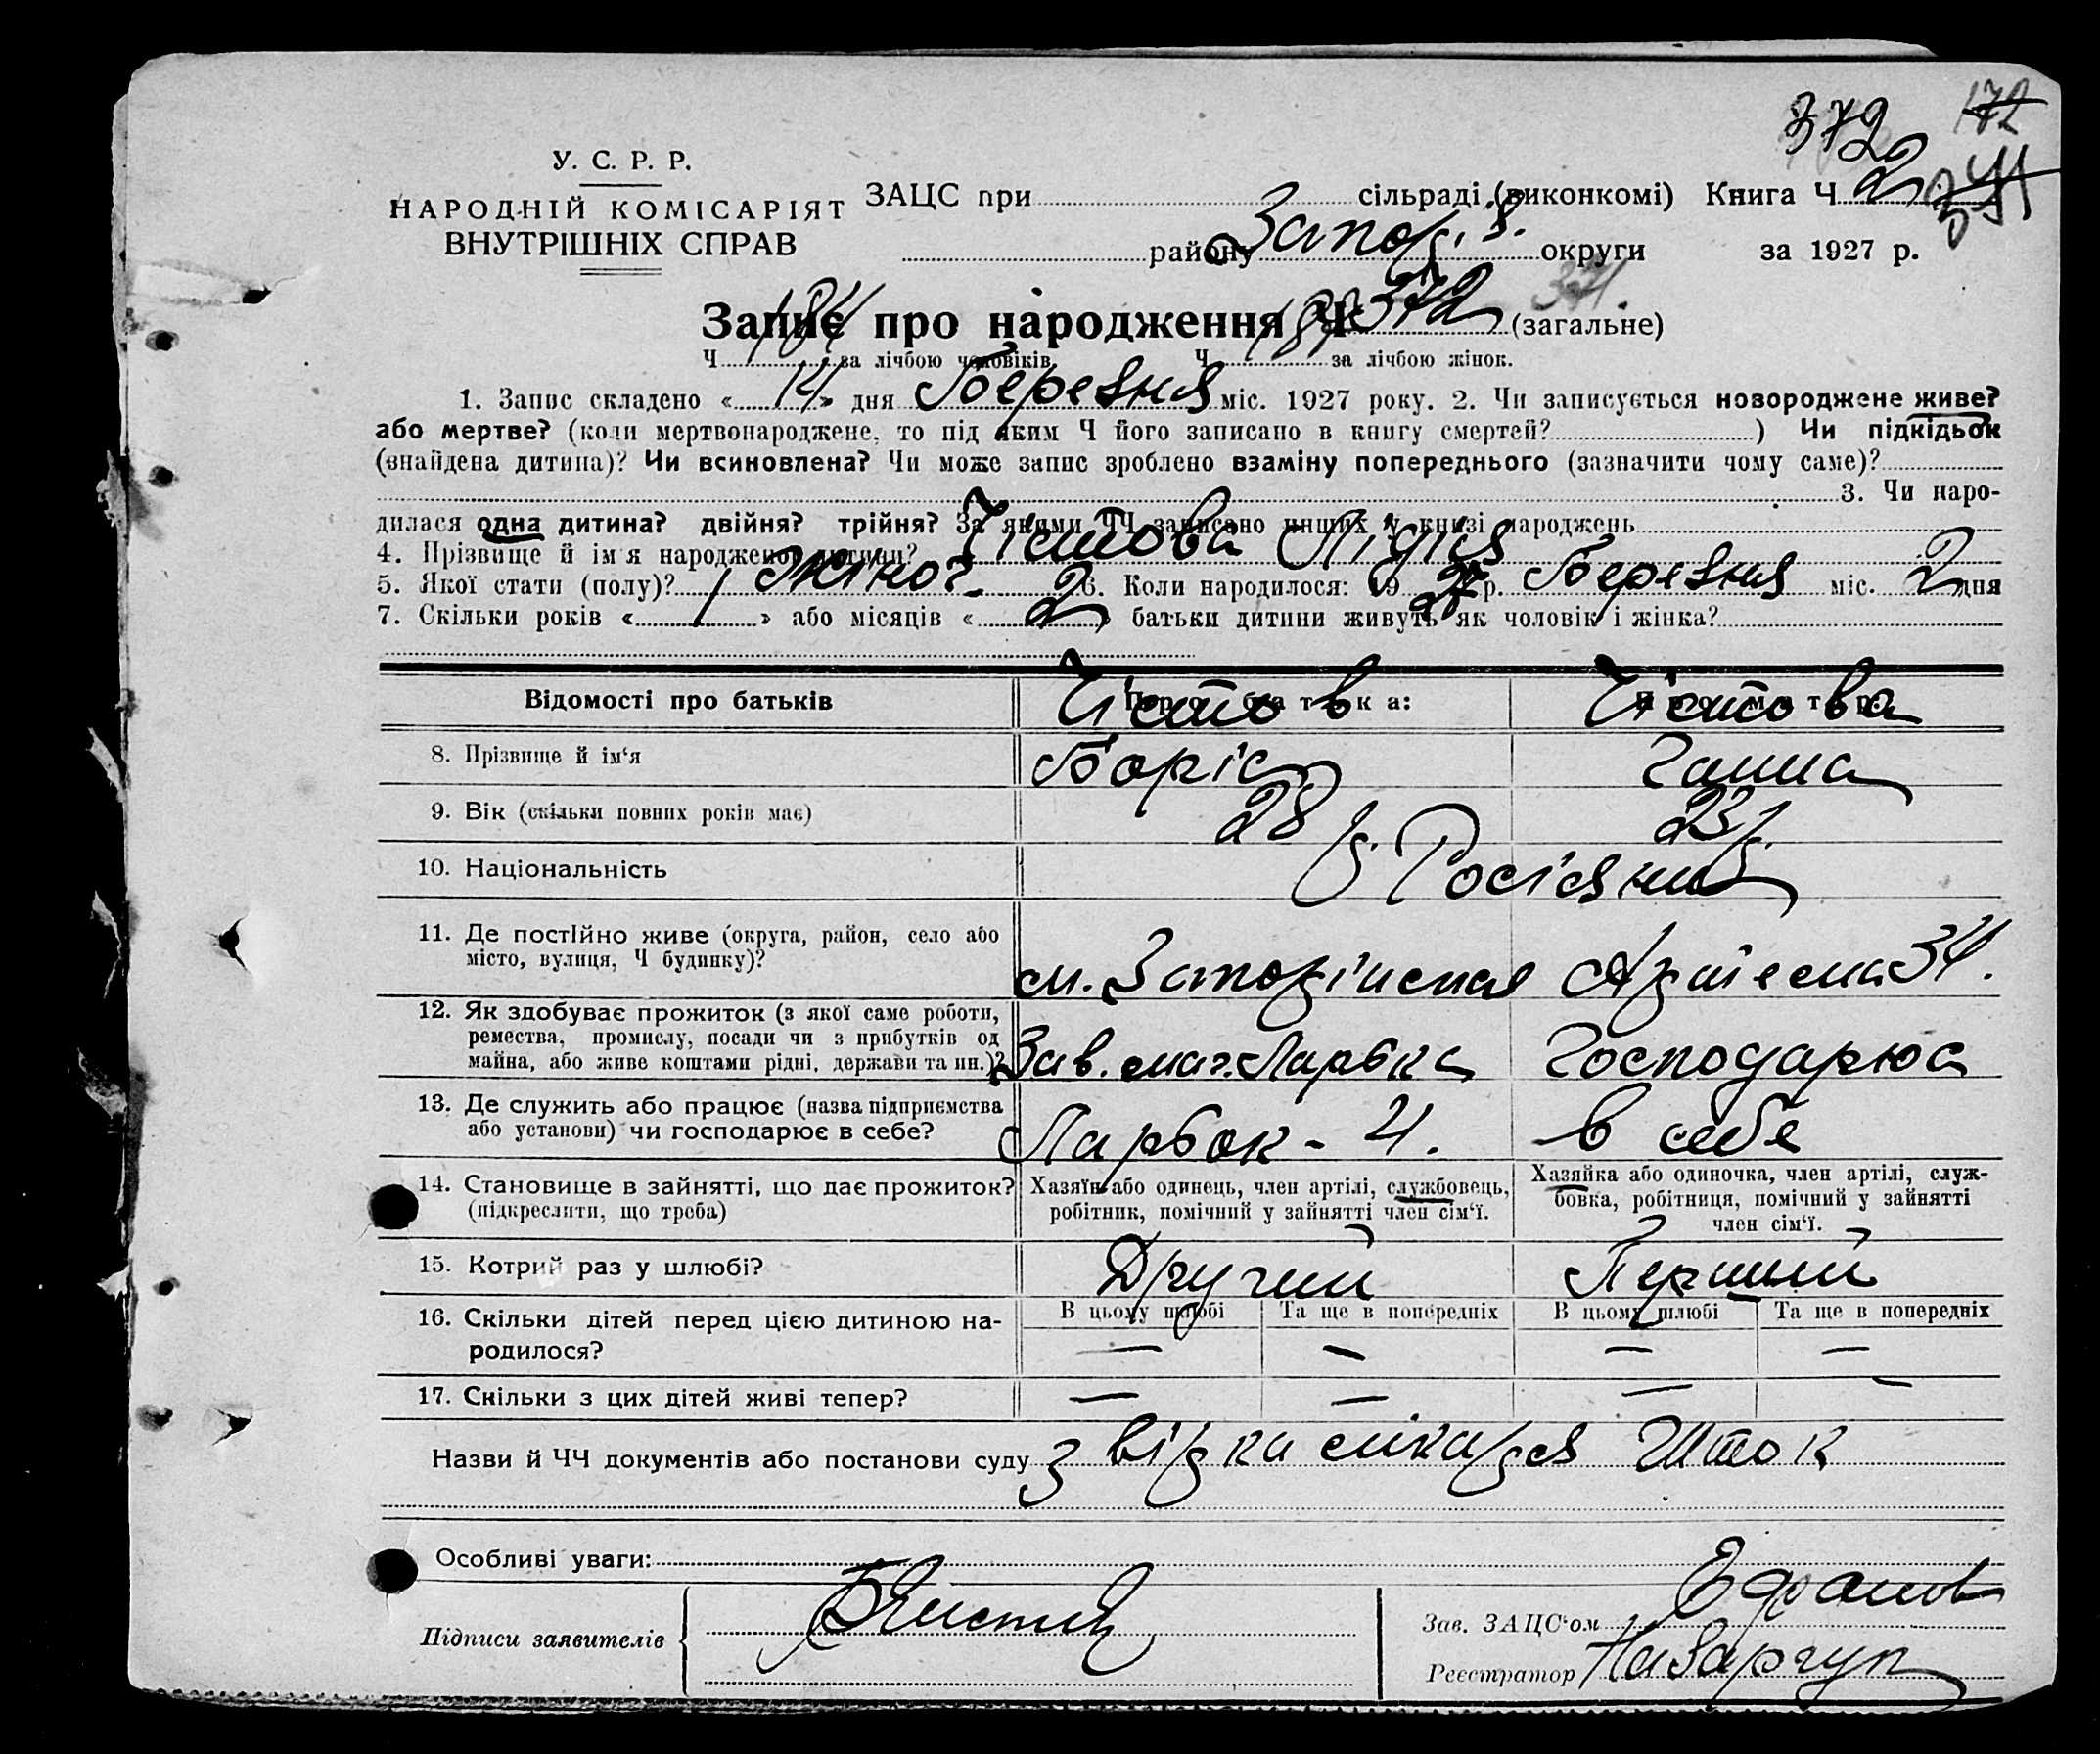 372 172
341
У. С. Р. Р.
НАРОДНІЙ КОМІСАРІЯТ
ВНУТРІШНІХ СПРАВ
ЗАЦС при сільраді (виконкомі) Книга Ч 2
району Запоріз. округи за 1927 р.
Запис про народження Ч 372 371. (загальне)
Ч 184 за лічбою чоловіків Ч за лічбою жінок.
1. Запис складено « 14 » дня Березня міс. 1927 року. 2. Чи записується новороджене живе?
або мертве? (коли мертвонароджене, то під яким Ч його записано в книгу смертей? ) Чи підкідьок
(знайдена дитина)? Чи всиновлена? Чи може запис зроблено взаміну попереднього (зазначити чому саме)?
3. Чи наро-
дилася одна дитина? двійня? трійня? За якими ЧЧ записано инших у книзі народжень
4. Прізвище й ім'я народженої дитини? Чістова Лідія
5. Якої стати (полу)? жіноч. 6. Коли народилося: 1927 р. Березня міс. 2 дня
7. Скільки років « 1 » або місяців « 2 » батьки дитини живуть як чоловік і жінка?
Відомості про батьків Про батька: Про матір:
Чістов Чістова
8. Прізвище й ім'я Боріс Ганна
9. Вік (скільки повних років має) 28 р. 23 р.
10. Національність Росіяни
11. Де постійно живе (округа, район, село або
місто, вулиця, Ч будинку)?
м. Запоріжжя Артема 34.
12. Як здобуває прожиток (з якої саме роботи,
ремества, промислу, посади чи з прибутків од
майна, або живе коштами рідні, держави та ин.)?
Зав. маг. Ларька Господарює
13. Де служить або працює (назва підприємства
або установи) чи господарює в себе?
Ларьок - 4. в себе
14. Становище в зайнятті, що дає прожиток?
(підкреслити, що треба)
Хазяїн або одинець, член артілі, службовець,
робітник, помічний у зайнятті член сім'ї.
Хазяйка або одиночка, член артілі, служ-
бовка, робітниця, помічний у зайнятті
член сім'ї.
15. Котрий раз у шлюбі? Другий Перший
16. Скільки дітей перед цією дитиною на-
родилося?
В цьому шлюбі Та ще в попередніх В цьому шлюбі Та ще в попередніх
— — — —
17. Скільки з цих дітей живі тепер? — — — —
Назви й ЧЧ документів або постанови суду Шток
Особливі уваги:
Підписи заявителів
Зав. ЗАЦС'ом
Реєстратор